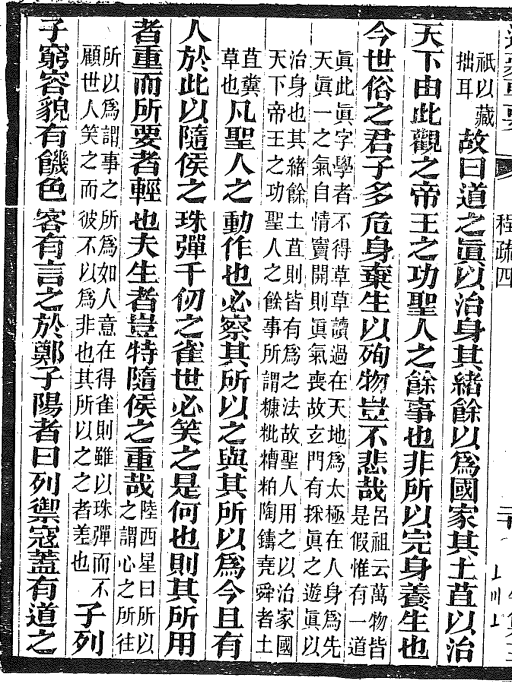 程疏四
祇以藏
拙耳
故曰道之眞以治身其緒餘以爲國家其土苴以治
天下由此觀之帝王之功聖人之餘事也非所以完身養生也
今世俗之君子多危身棄生以殉物豈不悲哉
呂祖云萬物皆
是假惟有一道
眞此眞字學者不得草草讀過在天地爲太極在人身爲先
天眞一之氣自情竇開則眞氣喪故玄門有採眞之遊眞以
治身也其緒餘土苴則皆有爲之法故聖人用之以治家國
天下帝王之功聖人之餘事所謂糠粃糟粕陶鑄堯舜者土
苴糞
草也
凡聖人之動作也必察其所以之與其所以爲今且有
人於此以隨侯之珠彈千仞之雀世必笑之是何也則其所用
者重而所要者輕也夫生者豈特隨侯之重哉
陸西星曰所以
之謂心之所往
所以爲謂事之所爲如人意在得雀則雖以珠彈而不
顧世人笑之而彼不以爲非也其所以之之者差也
子列
子窮容貌有饑色客有言之於鄭子陽者曰列禦寇蓋有道之